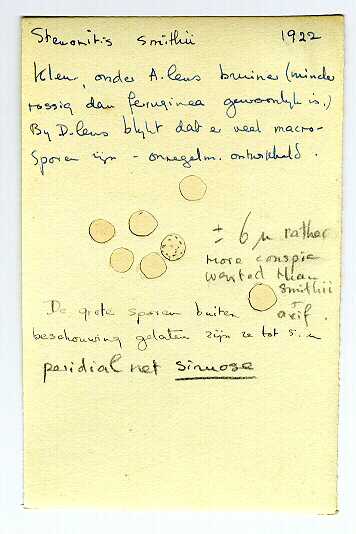 Stemonitis smithii 1922
kleur onder A. lens bruiner (minder
rossig dan ferruginea gewoonlijk is.)
By D. lens blijkt dat er veel macro-
sporen zijn - onregelm. ontwikkeld.
± 6 µ rather
more conspic
warted than
smithii
De grote sporen buiten axif.
beschouwing gelaten zijn ze tot 5.
peridial net sinuose